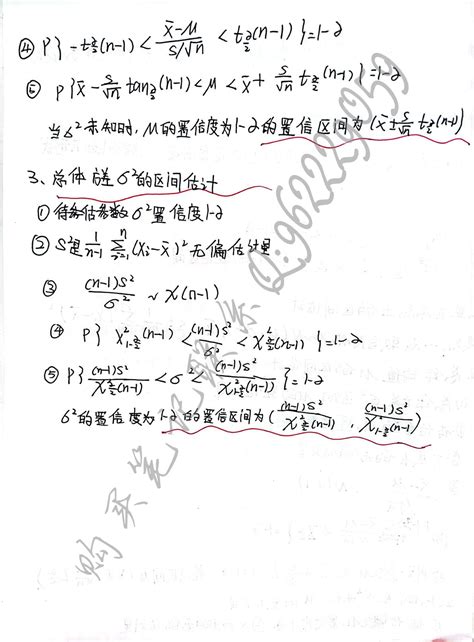 ④ P{-t_{α/2}(n-1) < \frac{x̄-μ}{S/√n} < t_{α/2}(n-1)} = 1-α
⑤ P{x̄ - \frac{S}{√n} t_{α/2}(n-1) < μ < x̄ + \frac{S}{√n} t_{α/2}(n-1)} = 1-α
当S²未知时, μ的置信度为1-α的置信区间为(x̄ ± \frac{S}{√n} t_{α/2}(n-1))
3、总体方差σ²的区间估计
① 待估参数σ²置信度1-α
② S²是\frac{1}{n-1} \sum_{i=1}^{n} (Xi-x̄)² 无偏估计量
③ \frac{(n-1)S²}{σ²} ~ χ(n-1)
④ P{χ²_{1-α/2}(n-1) < \frac{(n-1)S²}{σ²} < χ²_{α/2}(n-1)} = 1-α
⑤ P{\frac{(n-1)S²}{χ²_{α/2}(n-1)} < σ² < \frac{(n-1)S²}{χ²_{1-α/2}(n-1)}} = 1-α
σ²的置信度为1-α的置信区间为(\frac{(n-1)S²}{χ²_{α/2}(n-1)}, \frac{(n-1)S²}{χ²_{1-α/2}(n-1)})